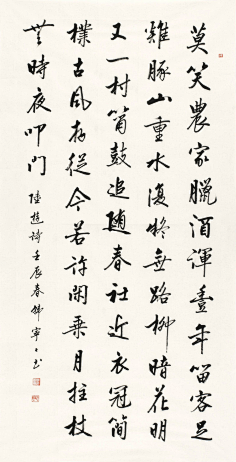 莫笑農家臘酒渾豐年留客足
雞豚山重水復疑無路柳暗花明
又一村簫鼓追隨春社近衣冠簡
樸古風存從今若許閑乘月拄杖
無時夜叩門
陸遊詩壬辰春寧々書